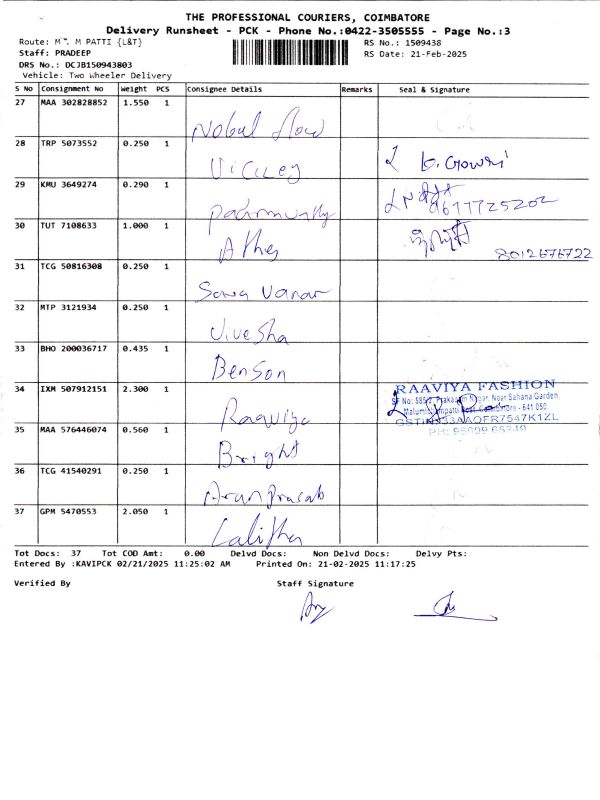 THE PROFESSIONAL COURIERS, COIMBATORE
Delivery Runsheet - PCK - Phone No.:0422-3505555 - Page No.:3
Route: M^. M PATTI {L&T} RS No.: 1509438
Staff: PRADEEP RS Date: 21-Feb-2025
DRS No.: DCJB150943803
Vehicle: Two Wheeler Delivery
S No Consignment No Weight PCS Consignee Details Remarks Seal & Signature
27 MAA 302828852 1.550 1
Nobal flow
28 TRP 5073552 0.250 1
29 KMU 3649274 0.290 1
9677725202
30 TUT 7108633 1.000 1
8012676722
31 TCG 50816308 0.250 1
32 MTP 3121934 0.250 1
Jivesha
33 BHO 200036717 0.435 1
Benson
34 IXM 507912151 2.300 1
RAAVIYA FASHION
Raaviya
35 MAA 576446074 0.560 1
Bright
36 TCG 41540291 0.250 1
Arun Prasab
37 GPM 5470553 2.050 1
Lalitha
Tot Docs: 37 Tot COD Amt: 0.00 Delvd Docs: Non Delvd Docs: Delvy Pts:
Entered By :KAVIPCK 02/21/2025 11:25:02 AM Printed On: 21-02-2025 11:17:25
Verified By Staff Signature